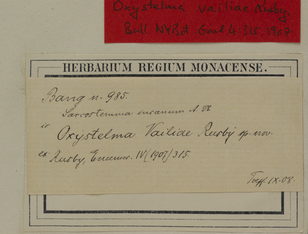 Oxystelma Vailiae Rusby
Bull NYBot Gard 4:315. 1907
HERBARIUM REGIUM MONACENSE.
Bang n. 985.
Sarcostemma
Oxystelma Vailiae Rusby sp. nov.
ex Rusby, Enum. IV (1907) 315.
IX.08.